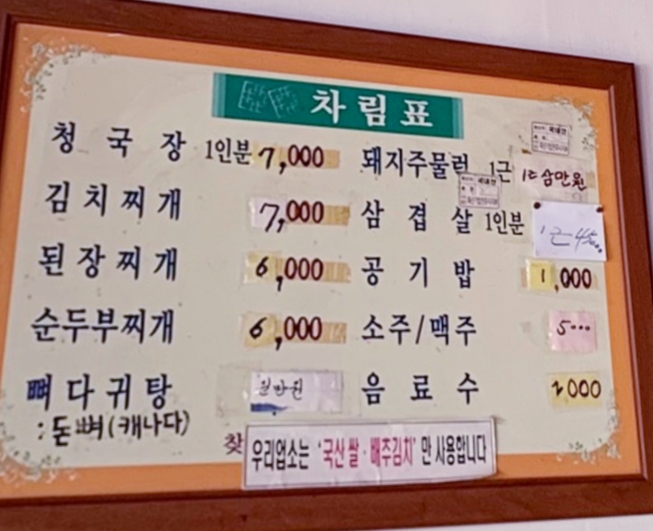 차림표
청국장 1인분 7,000
김치찌개 7,000
된장찌개 6,000
순두부찌개 6,000
뼈다귀탕 일만원
: 돈뼈(캐나다)
돼지주물럭 1근 삼만원
삼겹살 1인분 1근 45000
공기밥 1,000
소주/맥주 5000
음료수 2000
우리업소는 '국산 쌀·배추김치'만 사용합니다